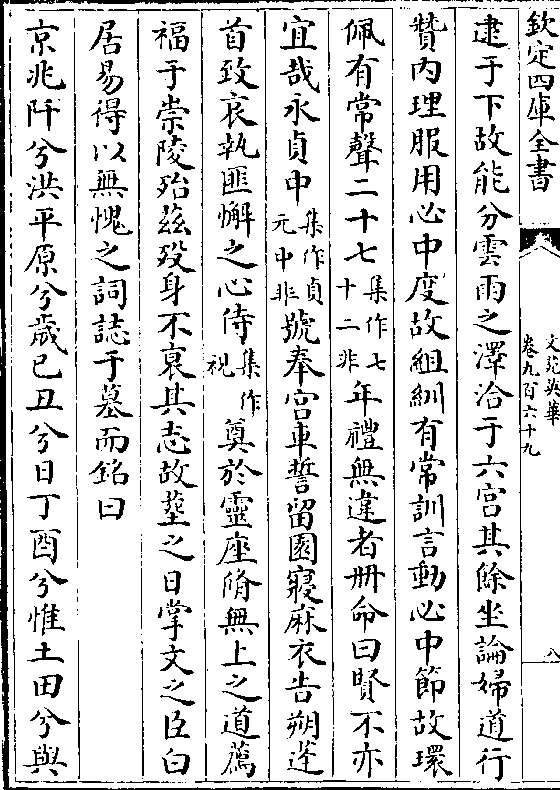 欽定四庫全書
文苑英華
卷九百六十九
八
逮于下故能分雲雨之澤洽于六宫其餘坐論婦道行
贊内理服用必中度故組紃有常訓言動必中節故環
佩有常聲二十七集作七十二非年禮無違者册命曰賢不亦
宜哉永貞中集作貞元中非號奉宫車誓留園寢麻衣告朔蓬
首致哀執匪懈之心侍集作祝奠於靈座脩無上之道薦
福于崇陵殆兹殁身不衰其志故塟之日掌文之臣白
居易得以無愧之詞誌于墓而銘曰
京兆阡兮洪平原兮歲己丑兮日丁酉兮惟土田兮與